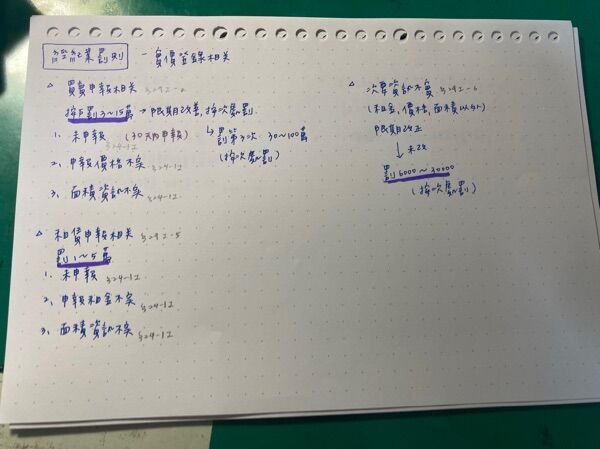 經紀業罰則 － 實價登錄相關
△ 買賣申報相關
按戶罰3～15萬 → 限期改善,按次處罰.
1. 未申報 (30天內申報) ↳ 罰第3次 30～100萬
(按次處罰)
2. 申報價格不実 §24-1Ⅱ
3. 面積資訊不実 §24-1Ⅱ.
△ 租賃申報相關
罰1～5萬
1. 未申報 §24-1Ⅱ
2. 申報租金不実 §24-1Ⅱ
3. 面積資訊不実 §24-1Ⅱ
△ 次要資訊不實
(租金,價格,面積以外)
限期改正
↓ 未改
罰6000～30000
(按次處罰)